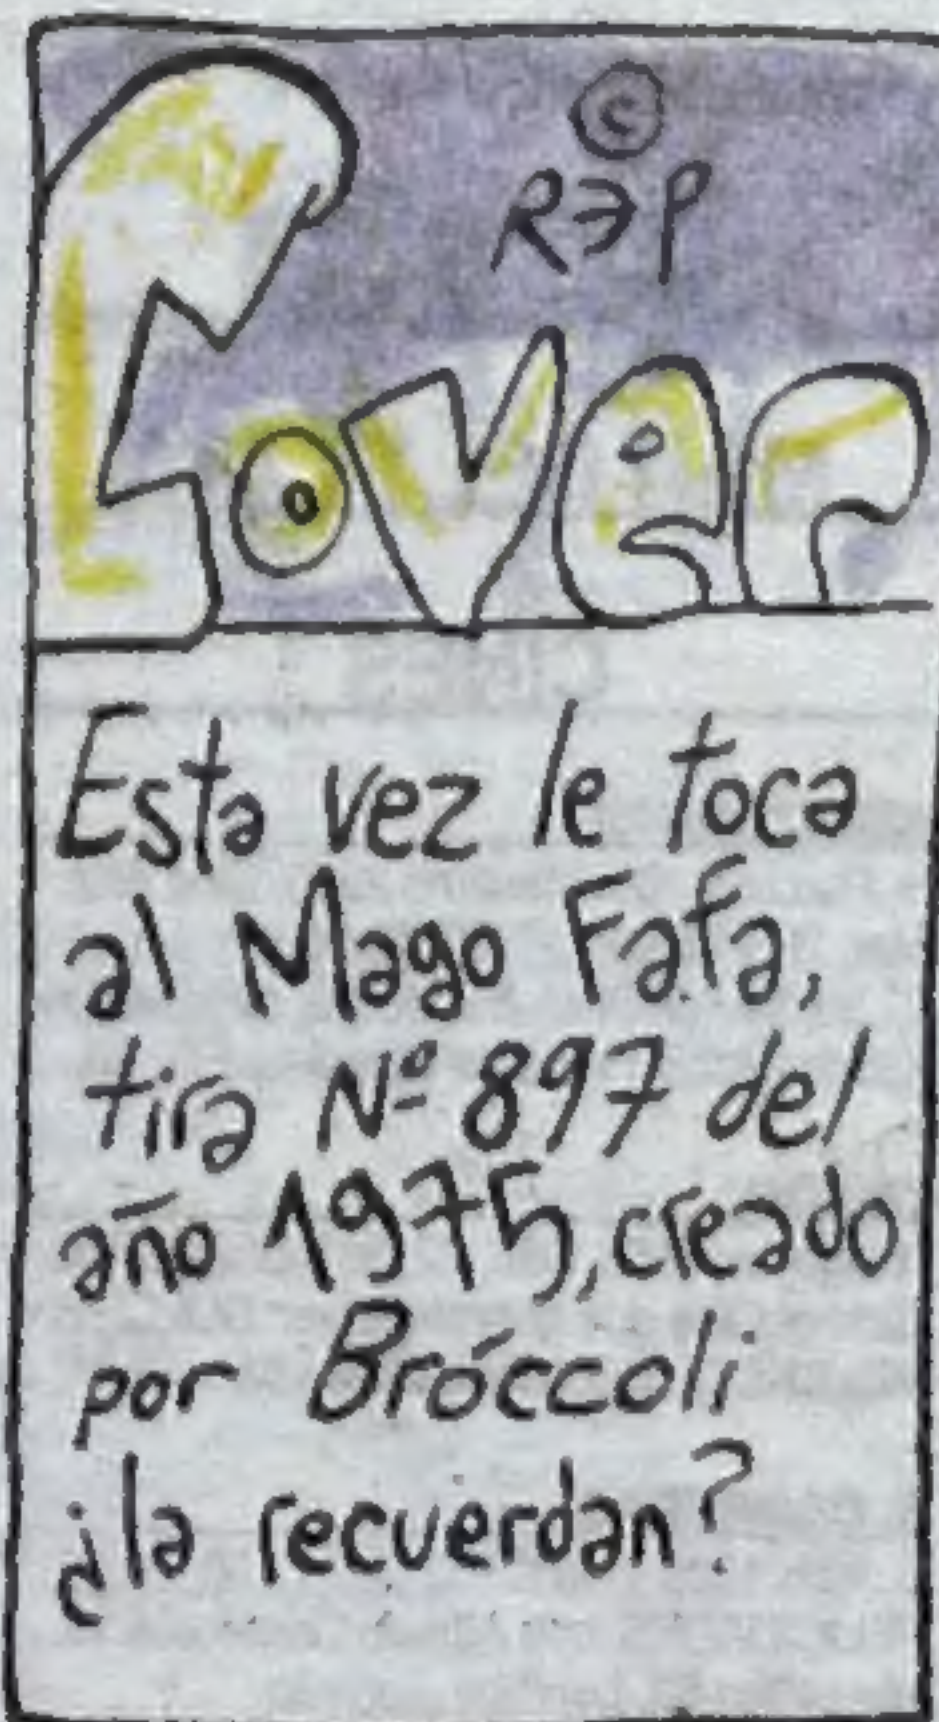 ©
REP
Cover
Esta vez le toca
al Mago Fafa,
tira Nº 897 del
año 1975, creado
por Bróccoli
¿la recuerdan?